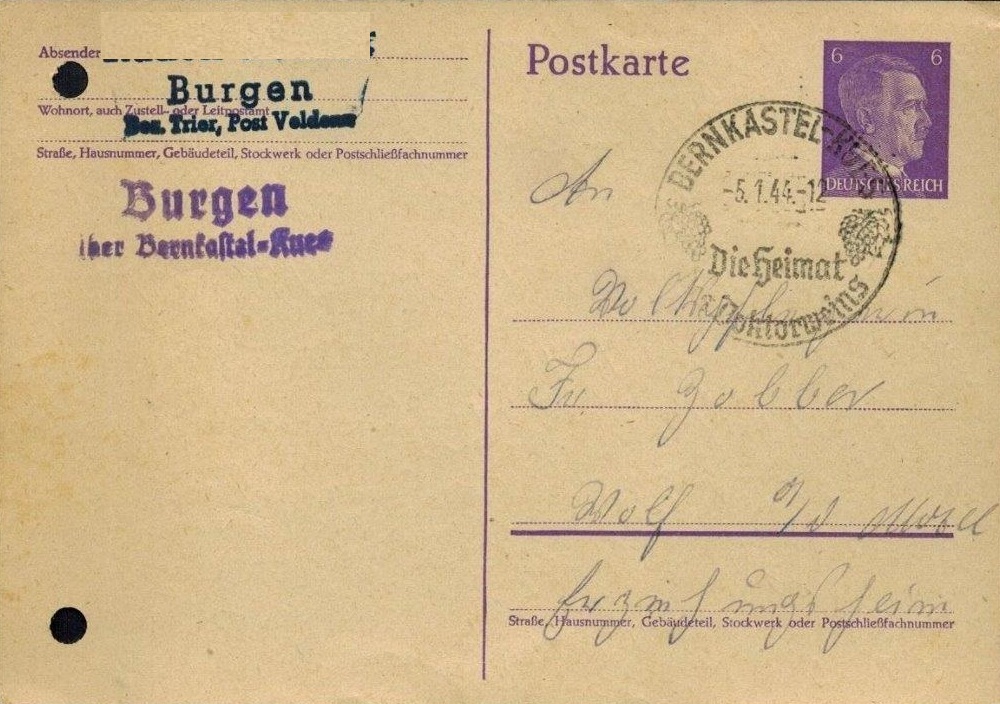 Absender
Burgen
Wohnort, auch Zustell- oder Leitpostamt
Bez. Trier, Post Veldenz
Straße, Hausnummer, Gebäudeteil, Stockwerk oder Postschließfachnummer
Burgen
über Bernkastel-Kues
Postkarte
6 6
DEUTSCHES REICH
BERNKASTEL-KUES
-5.1.44.-12
Die Heimat
Doktorweins
An
Fr. Zobber
Wolf a/d Mosel
Erziehungsheim
Straße, Hausnummer, Gebäudeteil, Stockwerk oder Postschließfachnummer